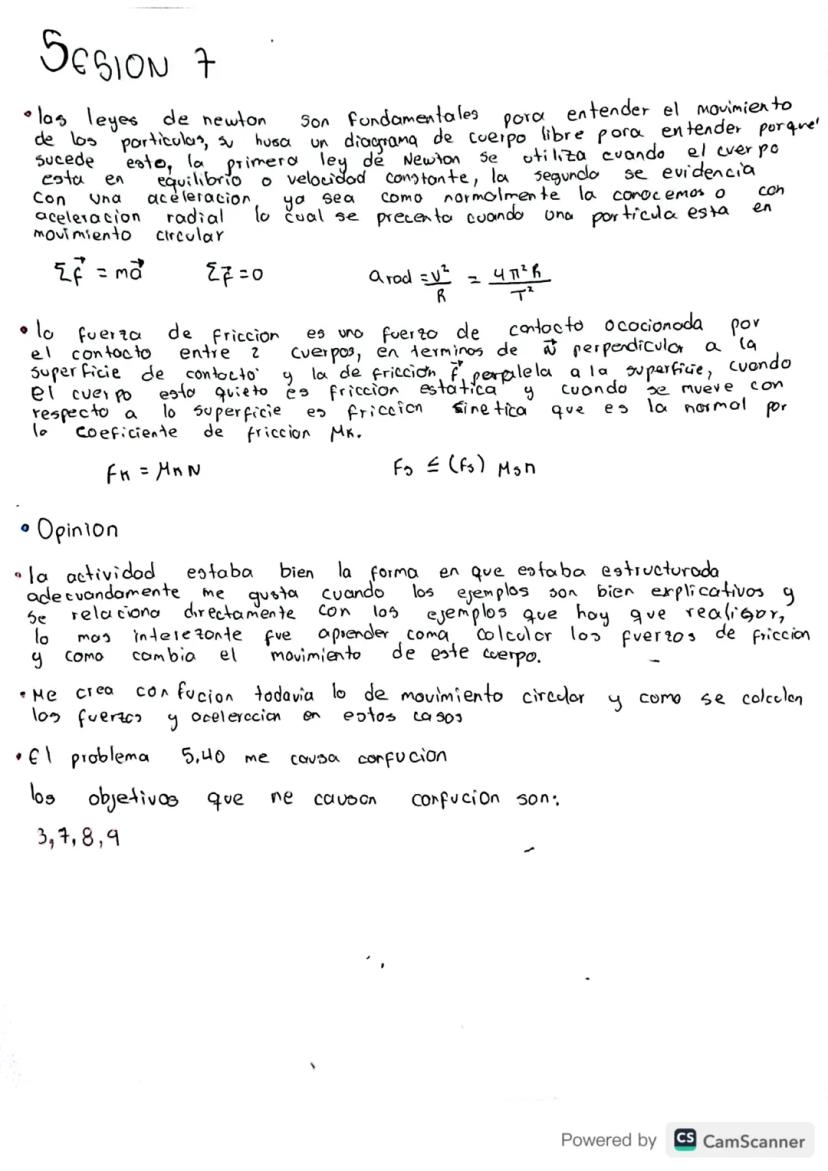 SESION 7
• las leyes de newton son fundamentales para entender el movimiento
de las particulas, y husa un diagrama de cuerpo libre para entender porque'
sucede esto, la primera ley de Newton se utiliza cuando el cuerpo
esta en equilibrio o velocidad constante, la segunda se evidencia
con una aceleracion, ya sea como normalmente la conocemos o con
aceleracion radial lo cual se precenta cuando una particula esta en
movimiento circular
Σf⃗ = ma⃗ Σf⃗ = 0 a rad = v²/R = 4π²R/T²
• la fuerza de friccion es una fuerza de contacto ococionada por
el contacto entre 2 cuerpos, en terminos de n⃗ perpendicular a la
superficie de contacto y la de fricción f⃗ perpalela a la superficie, cuando
el cuerpo esta quieto es friccion estatica y cuando se mueve con
respecto a la superficie es friccion sinetica que es la normal por
la coeficiente de friccion Mk.
Fk = Mk N Fs ≤ (fs) Msn
• Opinion
• la actividad estaba bien la forma en que estaba estructurada
adecuandamente me gusta cuando los ejemplos son bien explicativos y
se relaciona directamente con los ejemplos que hay que realisar,
lo mas interezante fue aprender como calcular las fuerzas de friccion
y como cambia el movimiento de este cuerpo.
• Me crea confucion todavia lo de movimiento circular y como se calculan
las fuerzas y aceleraccion en estos casos
• El problema 5,40 me causa confucion
los objetivos que me causan confucion son:
3,7,8,9
Powered by CS CamScanner